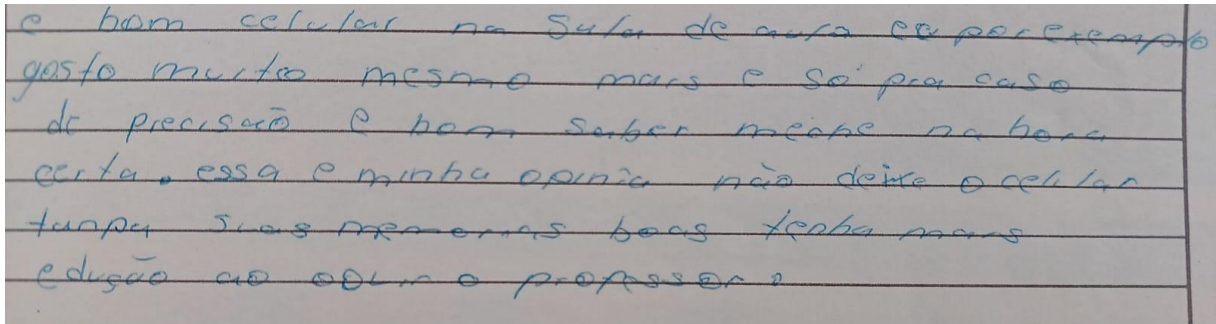 e bom celular na Sala de aula eu por exemplo
gosto muito mesmo mais e só pra caso
de precisão e bom saber meche na hora
certa. essa e minha opinia não deixe o celular
tanpa suas memorias boas tenha mais
edução ao ouvir o professor.